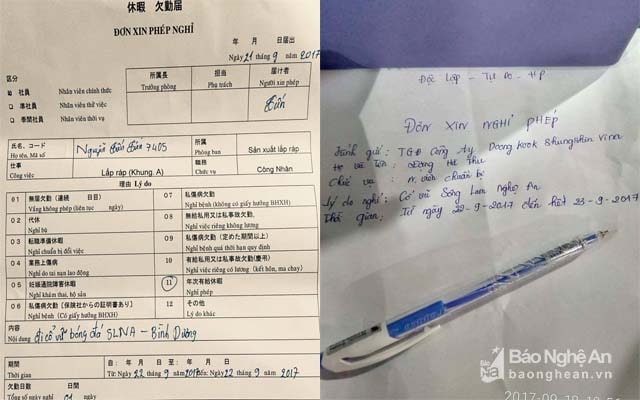 休暇 欠勤届
ĐƠN XIN PHÉP NGHỈ
年 月 日届出
Ngày 21 tháng 9 năm 2017
区分
☑ 社員 Nhân viên chính thức
□ 準社員 Nhân viên thử việc
□ 季間社員 Nhân viên thời vụ
所属長 担当 届け者
Trưởng phòng Phụ trách Người xin phép
氏名、コード
Họ tên, Mã số
7405
所属
Phòng ban
Sản xuất lắp ráp
仕事
Công việc
Lắp ráp (Khung. A)
職務
Chức vụ
Công Nhân
理由 Lý do
01 無届欠勤（連続 日目）
Vắng không phép (liên tục ngày)
02 代休
Nghỉ bù
03 転職準備休暇
Nghỉ chuẩn bị đổi việc
04 業務上傷病
Nghỉ do tai nạn lao động
05 妊娠通院障害休暇
Nghỉ khám thai, hộ sản
06 私傷病欠勤〔保険社からの証明書あり〕
Nghỉ bệnh (Có giấy hưởng BHXH)
07 私傷病欠勤
Nghỉ bệnh (không có giấy hưởng BHXH)
08 無給私用又は私事故欠勤、
Nghỉ việc riêng không lương
09 私傷病欠勤（定めた期間以上）
Nghỉ bệnh quá thời hạn quy định
10 有給私用又は私事故欠勤(慶弔)
Nghỉ việc riêng có lương (kết hôn, ma chay)
11 年次有給休暇
Nghỉ phép
12 その他
Lý do khác
内容
Nội dung
đi cổ vũ bóng đá SLNA - Bình Dương
期間
Thời gian
自： 年 月 日 至： 年 月 日
Từ: Ngày 22 tháng 9 năm 2017 Đến: Ngày 22 tháng 9 2017
欠勤日数 日間
Tổng số ngày nghỉ 01 ngày
Độc lập - Tự do - HP
ĐƠN XIN NGHỈ PHÉP
Kính gửi: TGĐ Công ty Doong kook Shungshin Vina
Họ và tên: Dương Thị Thu
Chức vụ: N. viên chuẩn bị
Lý do nghỉ: Cổ vũ Sông Lam Nghệ An
Thời gian: Từ ngày 22-9-2017 đến hết 23-9-2017
Báo Nghệ An
baonghean.vn